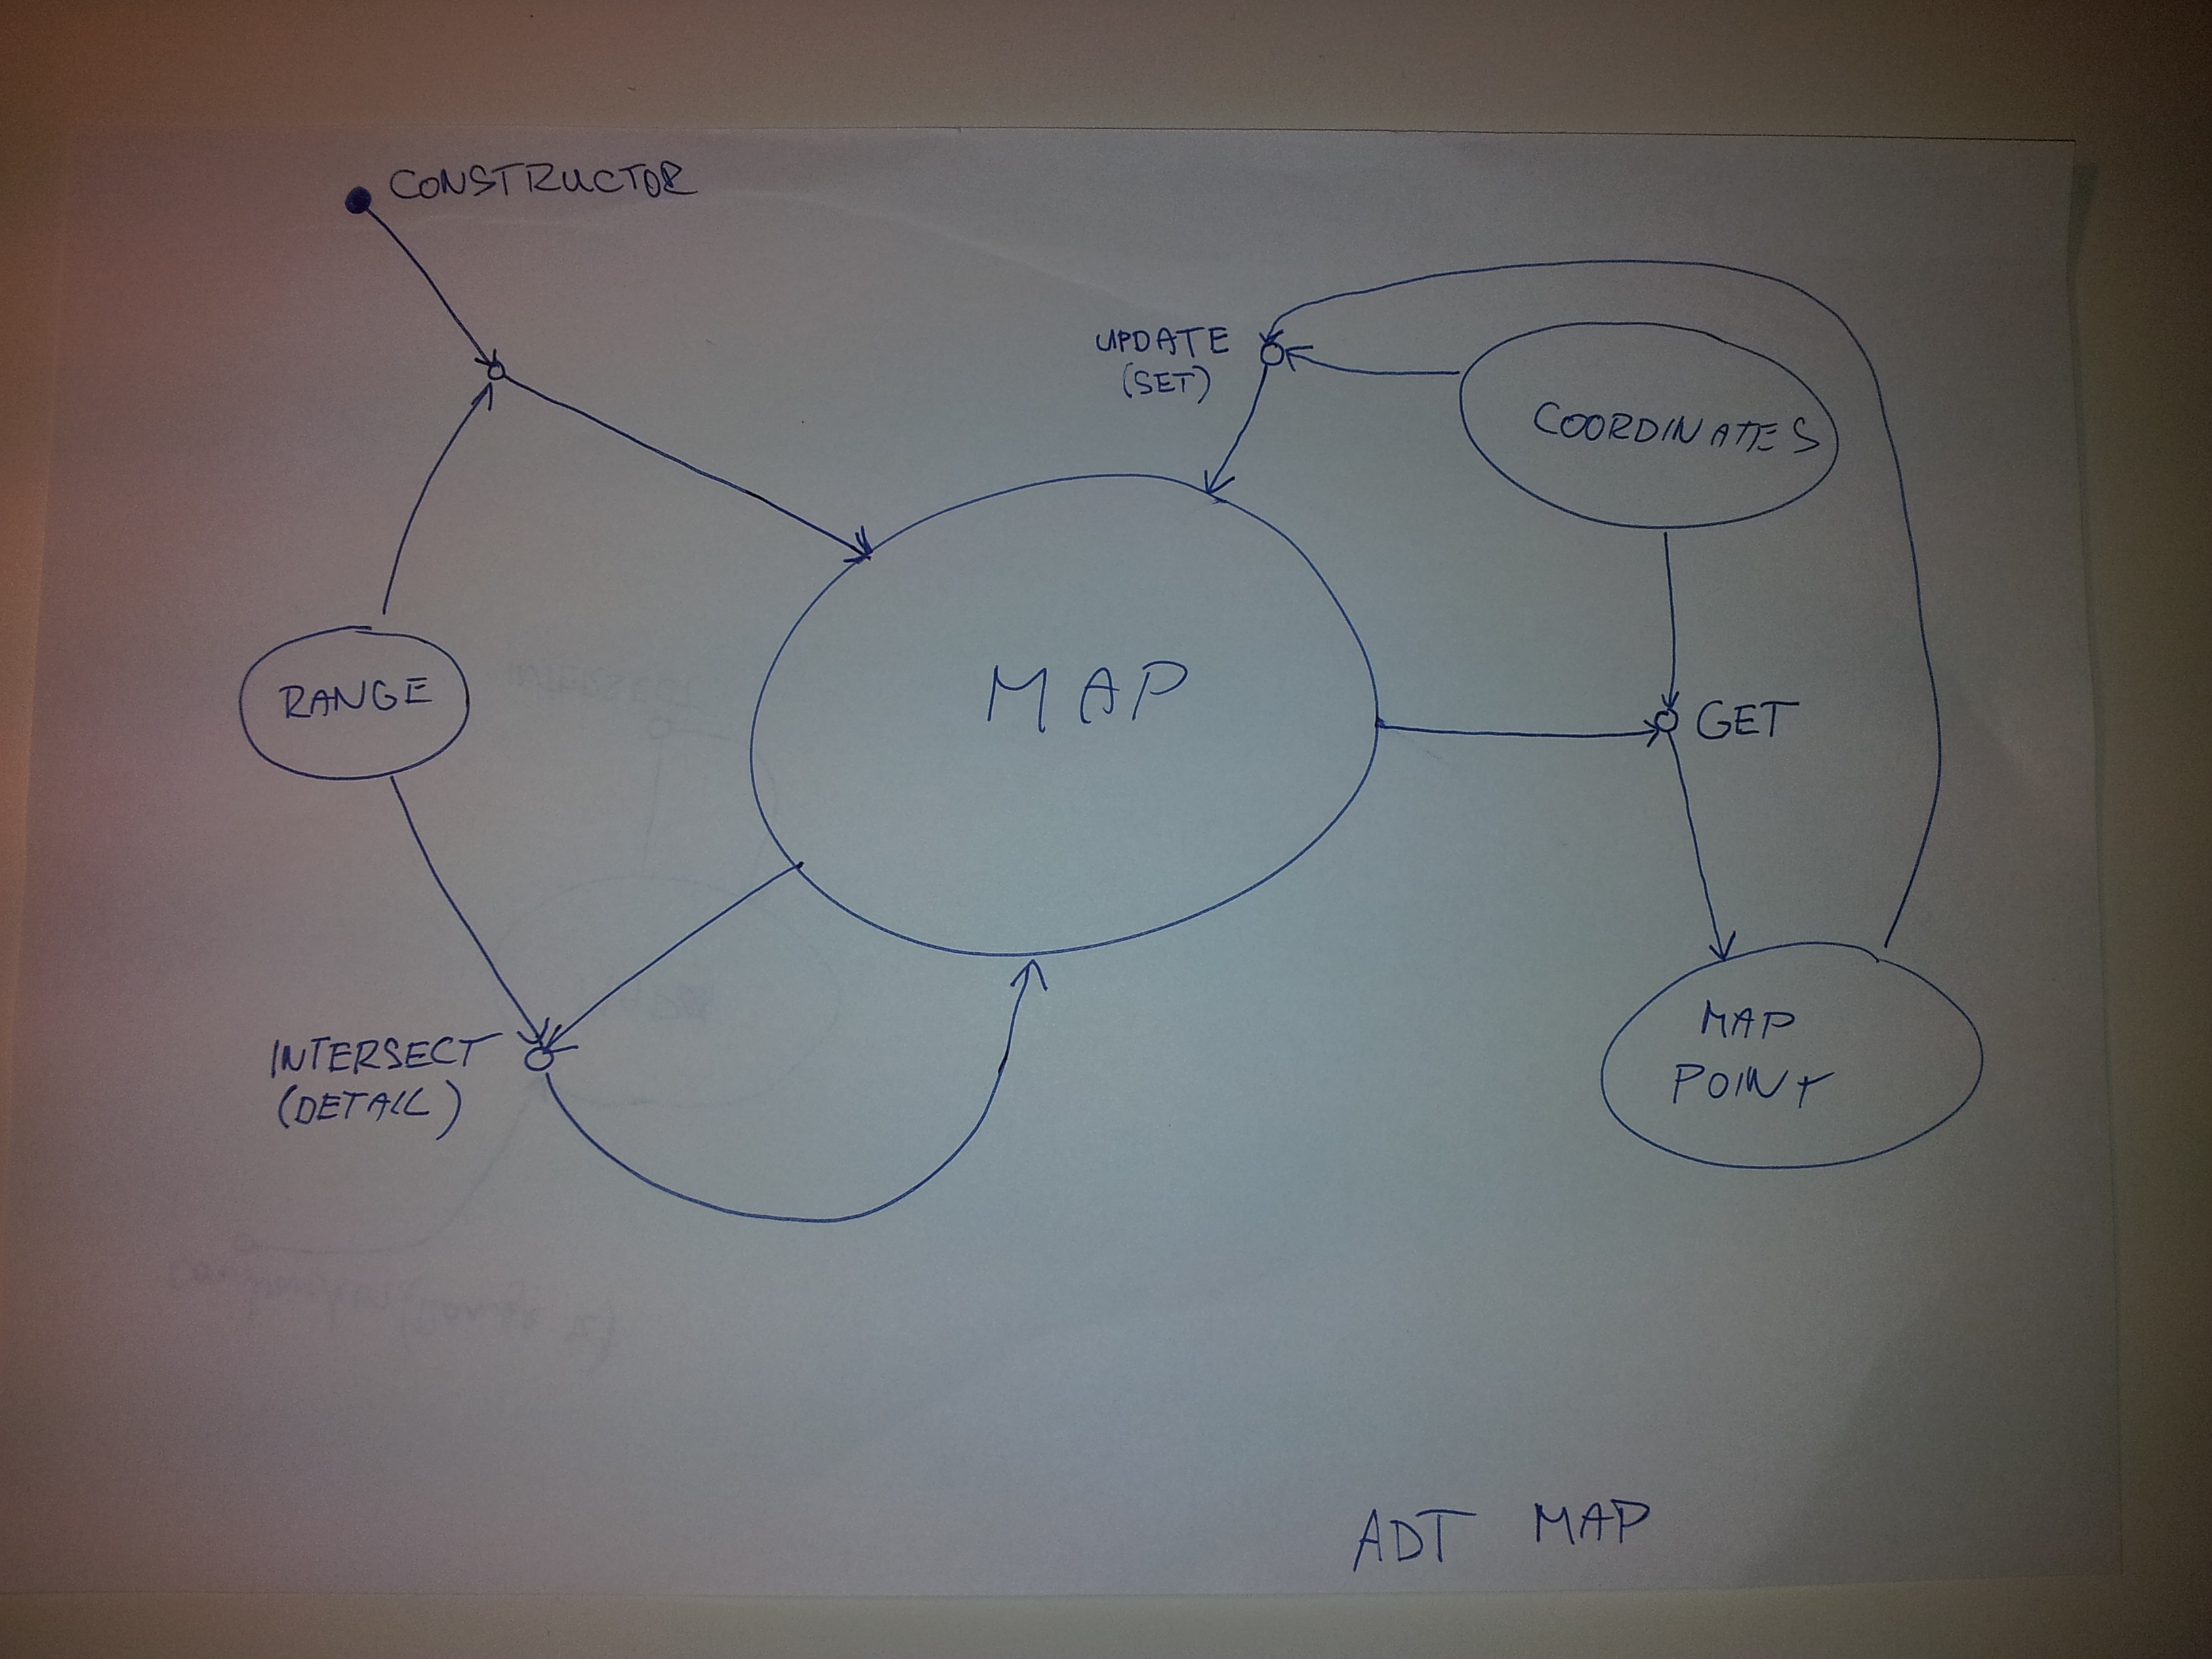 CONSTRUCTOR
UPDATE
(SET)
COORDINATES
RANGE
MAP
GET
INTERSECT
(DETAIL)
MAP
POINT
ADT MAP